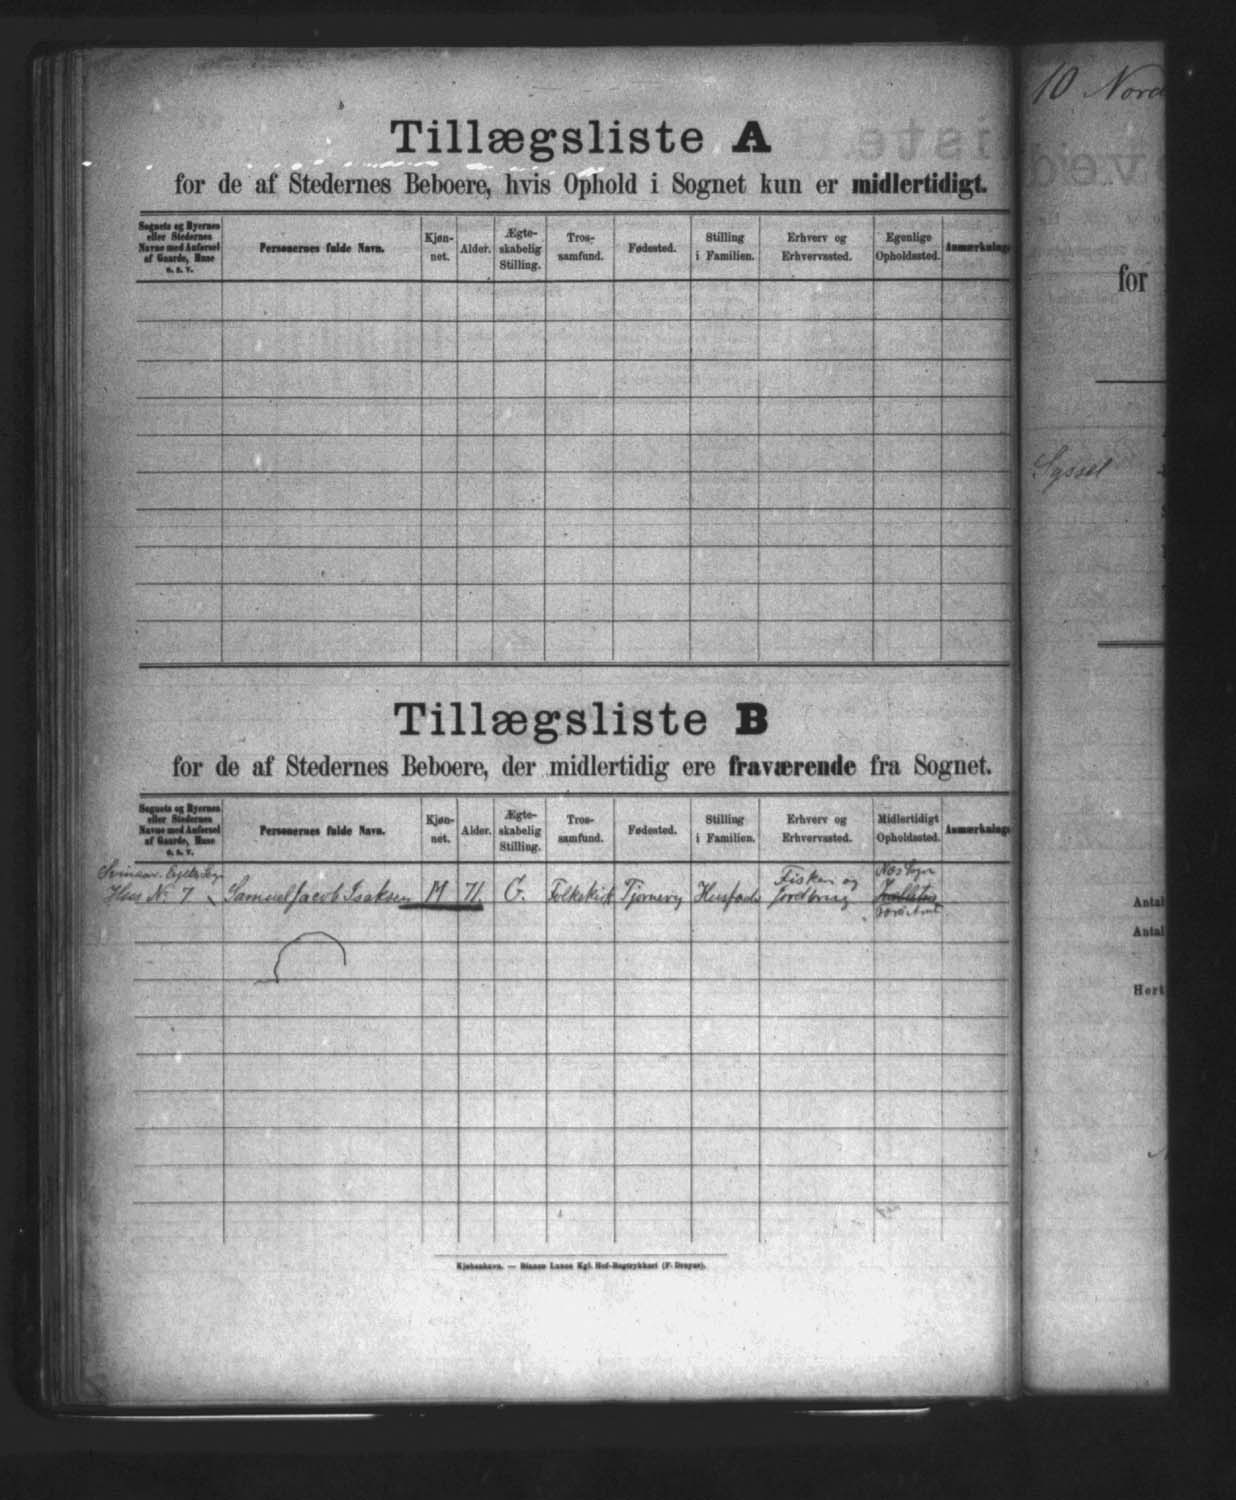 Tillægsliste A
for de af Stedernes Beboere, hvis Ophold i Sognet kun er midlertidigt.
Sognets og Byernes eller Stedernes Navne med Anførsel af Gaarde, Huse o. s. v.
Personernes fulde Navn.
Kjøn-
net.
Alder.
Ægte-
skabelig
Stilling.
Tros-
samfund.
Fødested.
Stilling
i Familien.
Erhverv og
Erhvervssted.
Egenlige
Opholdssted.
Anmærkning
Tillægsliste B
for de af Stedernes Beboere, der midlertidig ere fraværende fra Sognet.
Sognets og Byernes
eller Stedernes
Navne med Anførsel
af Gaarde, Huse
o. s. v.
Personernes fulde Navn.
Kjøn-
net.
Alder.
Ægte-
skabelig
Stilling.
Tros-
samfund.
Fødested.
Stilling
i Familien.
Erhverv og
Erhvervssted.
Midlertidigt
Opholdssted.
Anmærkning
Hus No. 7
Samuel Jacob Isaksen
M
71.
G.
Folkekirk
Tjørnevig
Husfader
Fisker og
Jordbrug
Næs Sogn
Kjøbenhavn. — Bianco Lunos Kgl. Hof-Bogtrykkeri (F. Dreyer).
10 Nord
for
Syssel
Antal
Antal
Hert